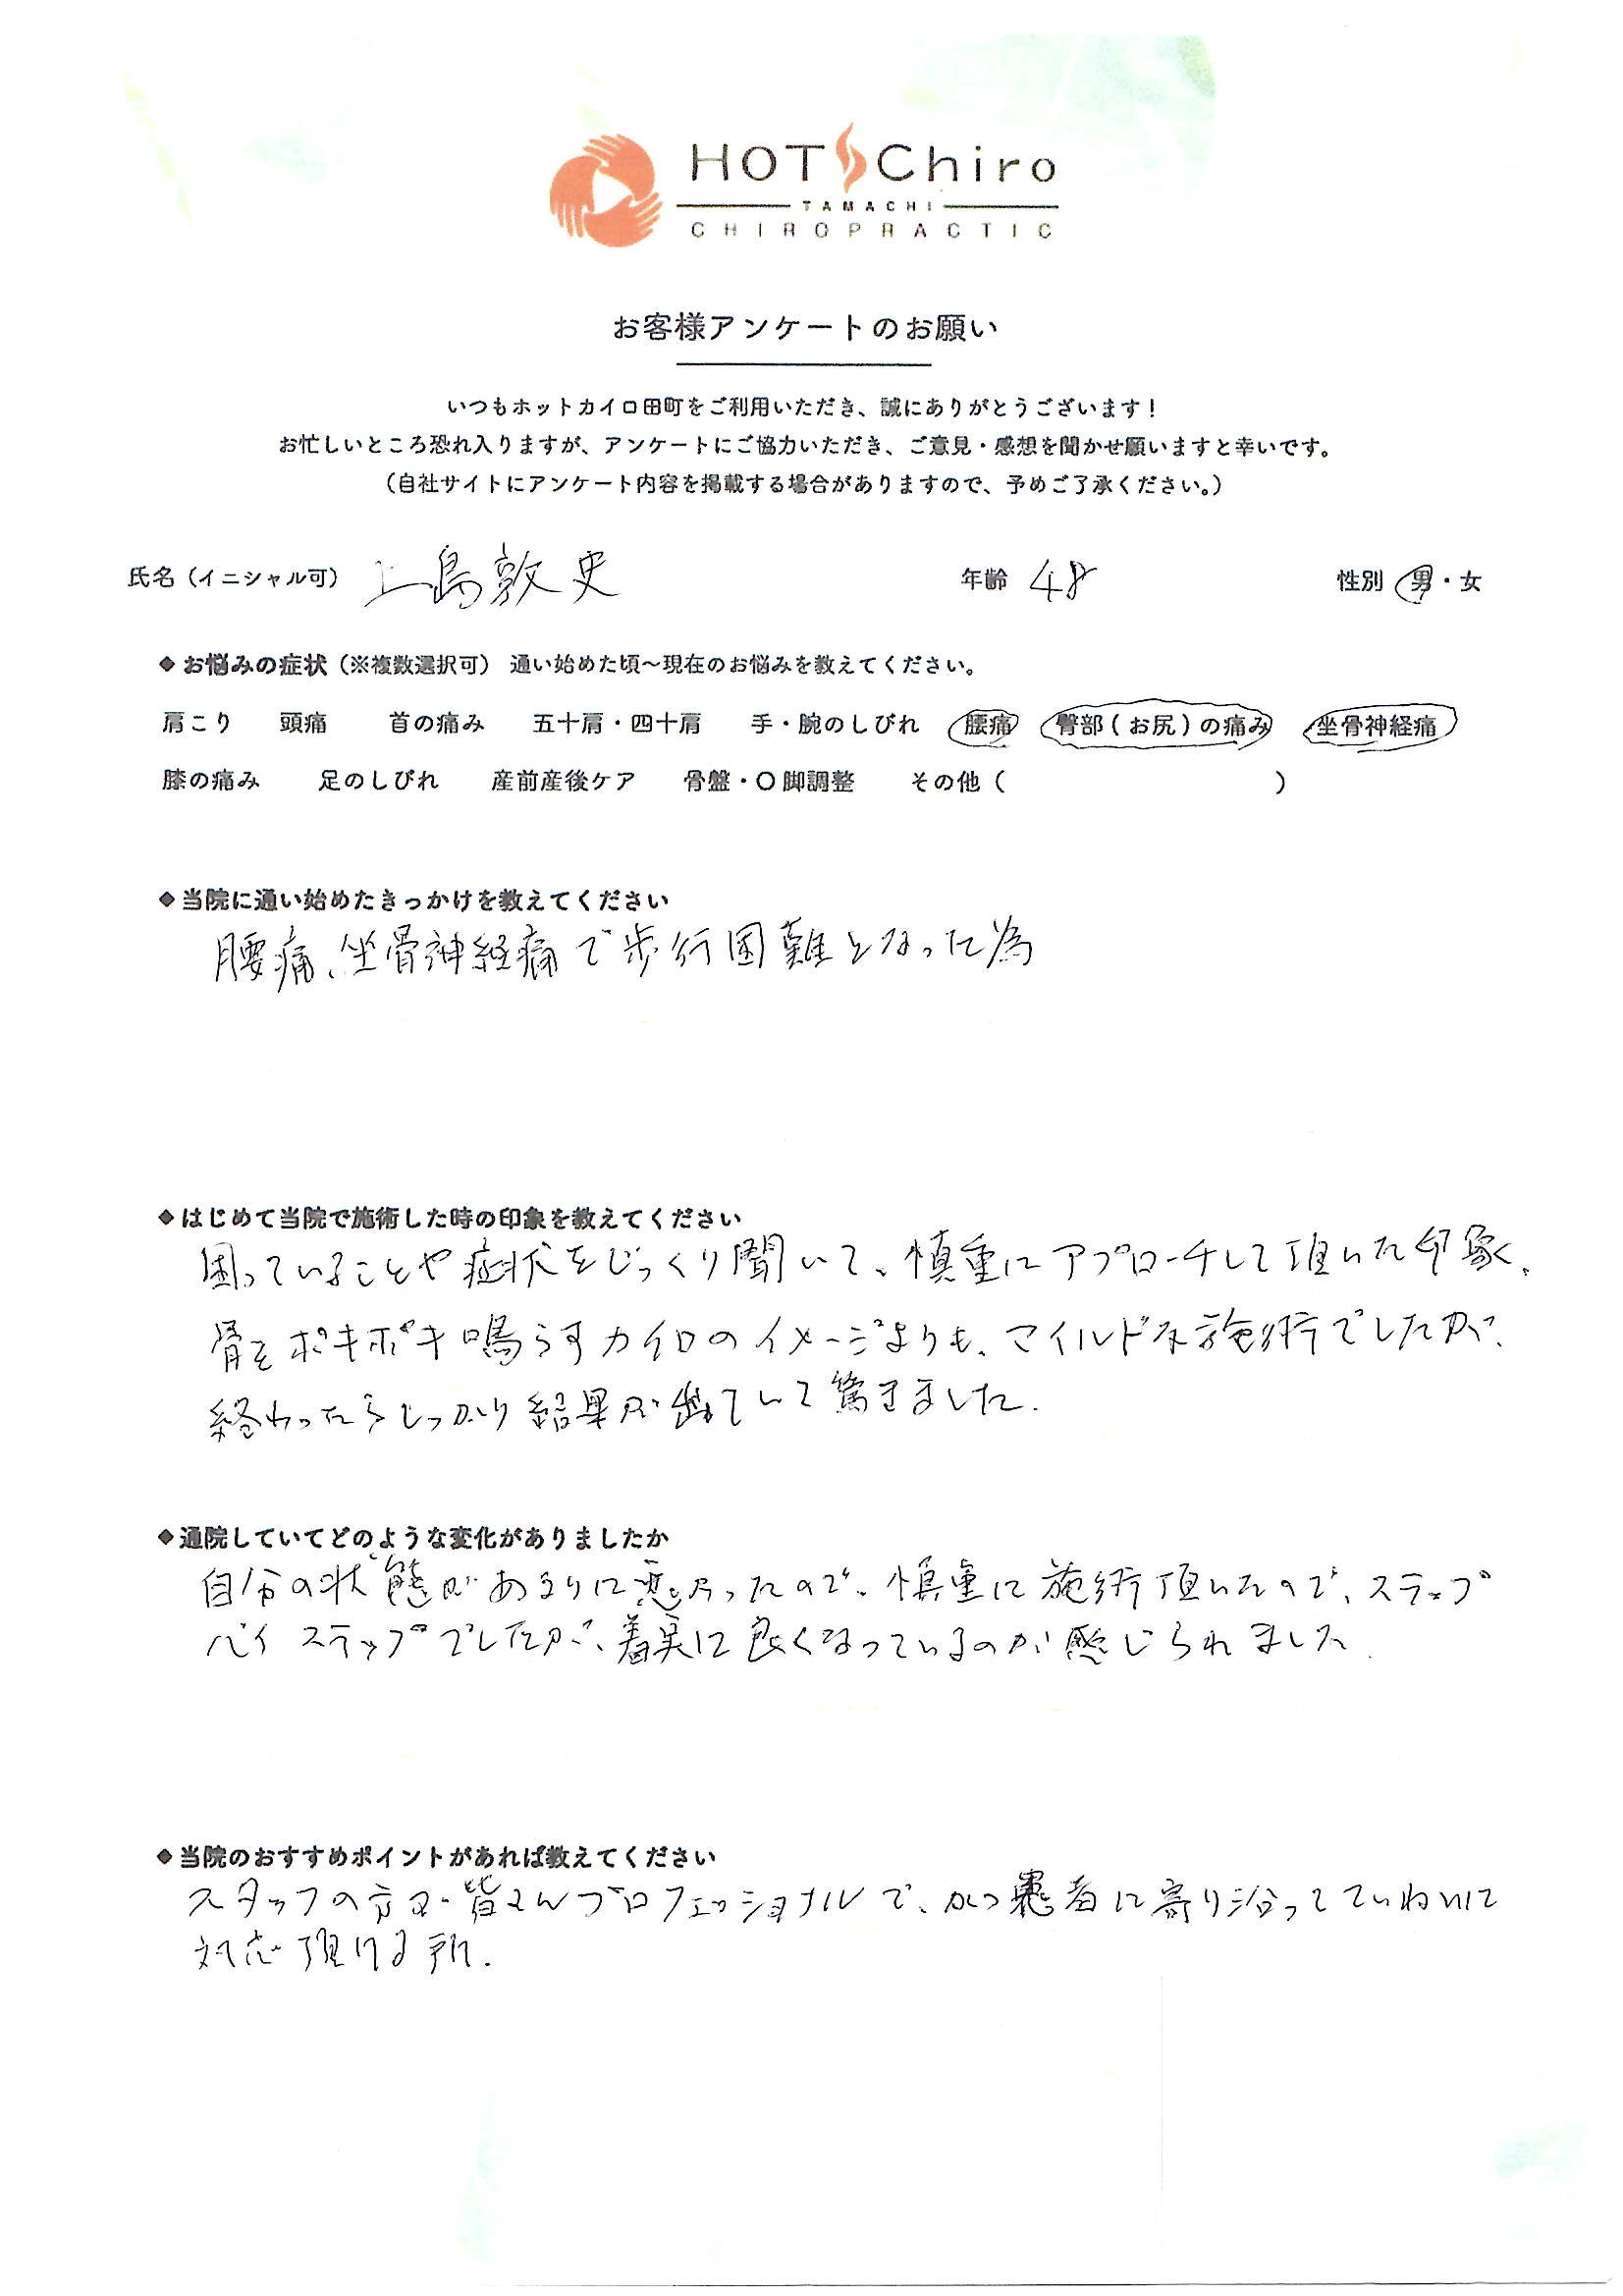 HOT Chiro
TAMACHI
CHIROPRACTIC
お客様アンケートのお願い
いつもホットカイロ田町をご利用いただき、誠にありがとうございます！
お忙しいところ恐れ入りますが、アンケートにご協力いただき、ご意見・感想を聞かせ願いますと幸いです。
（自社サイトにアンケート内容を掲載する場合がありますので、予めご了承ください。）
氏名（イニシャル可） 上島敦史 年齢 48 性別 男・女
◆お悩みの症状（※複数選択可） 通い始めた頃～現在のお悩みを教えてください。
肩こり 頭痛 首の痛み 五十肩・四十肩 手・腕のしびれ 腰痛 臀部（お尻）の痛み 坐骨神経痛
膝の痛み 足のしびれ 産前産後ケア 骨盤・〇脚調整 その他（ ）
◆当院に通い始めたきっかけを教えてください
腰痛、坐骨神経痛で歩行困難となった為
◆はじめて当院で施術した時の印象を教えてください
困っていることや症状をじっくり聞いて、慎重にアプローチして頂いた印象。
骨をポキポキ鳴らすカイロのイメージよりも、マイルドな施術でしたが、
終わったらしっかり結果が出ていて驚きました。
◆通院していてどのような変化がありましたか
自分の状態があまりに悪かったので、慎重に施術頂いたので、ステップ
バイステップでしたが、着実に良くなっているのが感じられました
◆当院のおすすめポイントがあれば教えてください
スタッフの方々皆さんプロフェッショナルで、かつ患者に寄り沿ってていねいに
対応頂ける所。